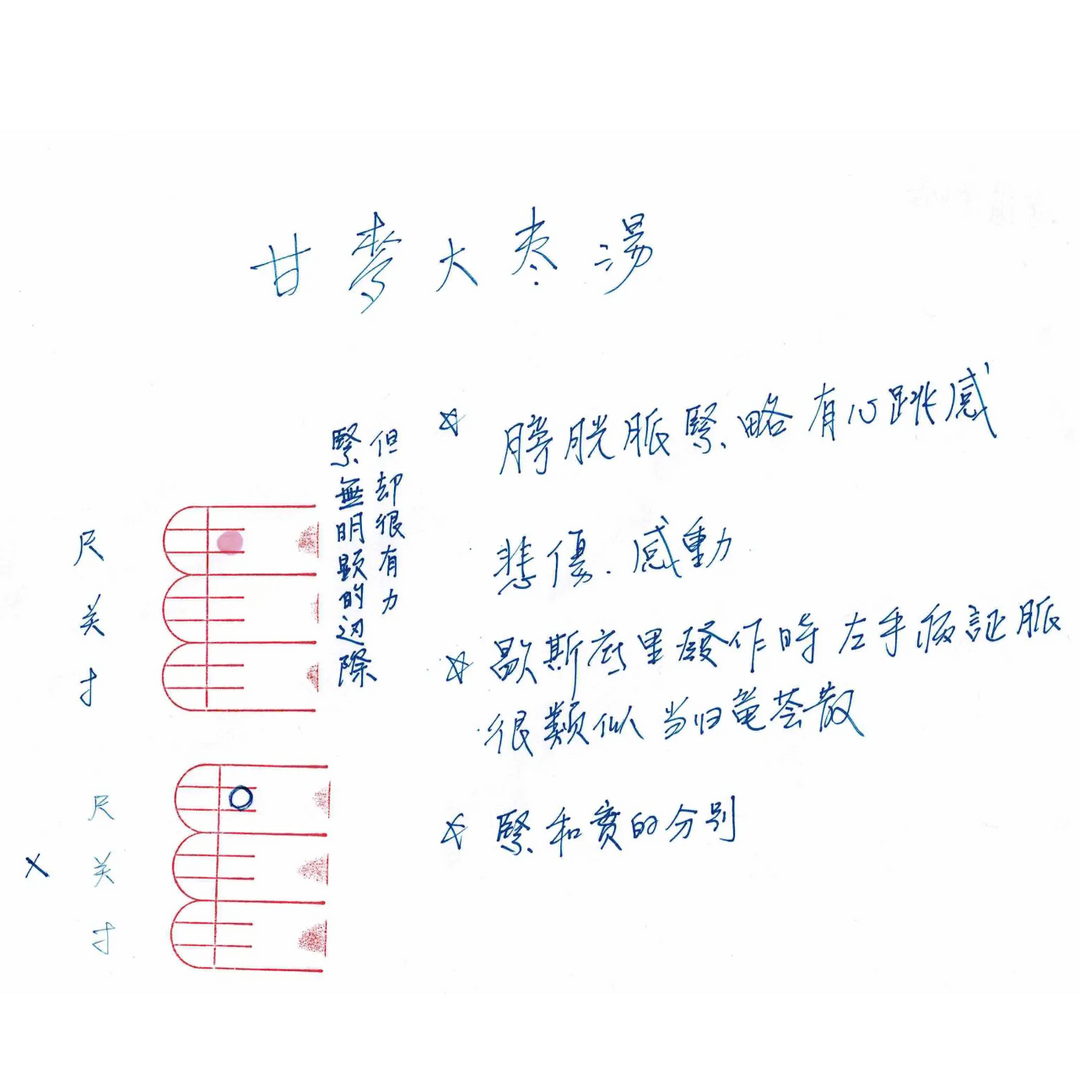 甘麥大枣湯
☆ 膀胱脈緊.略有心跳感
悲傷.感動
☆ 歇斯底里發作時左手病証脈
很類似当归龍荟散
☆ 緊和實的分别
但却很有力
緊無明顕的边際
尺
关
寸
尺
X 关
寸